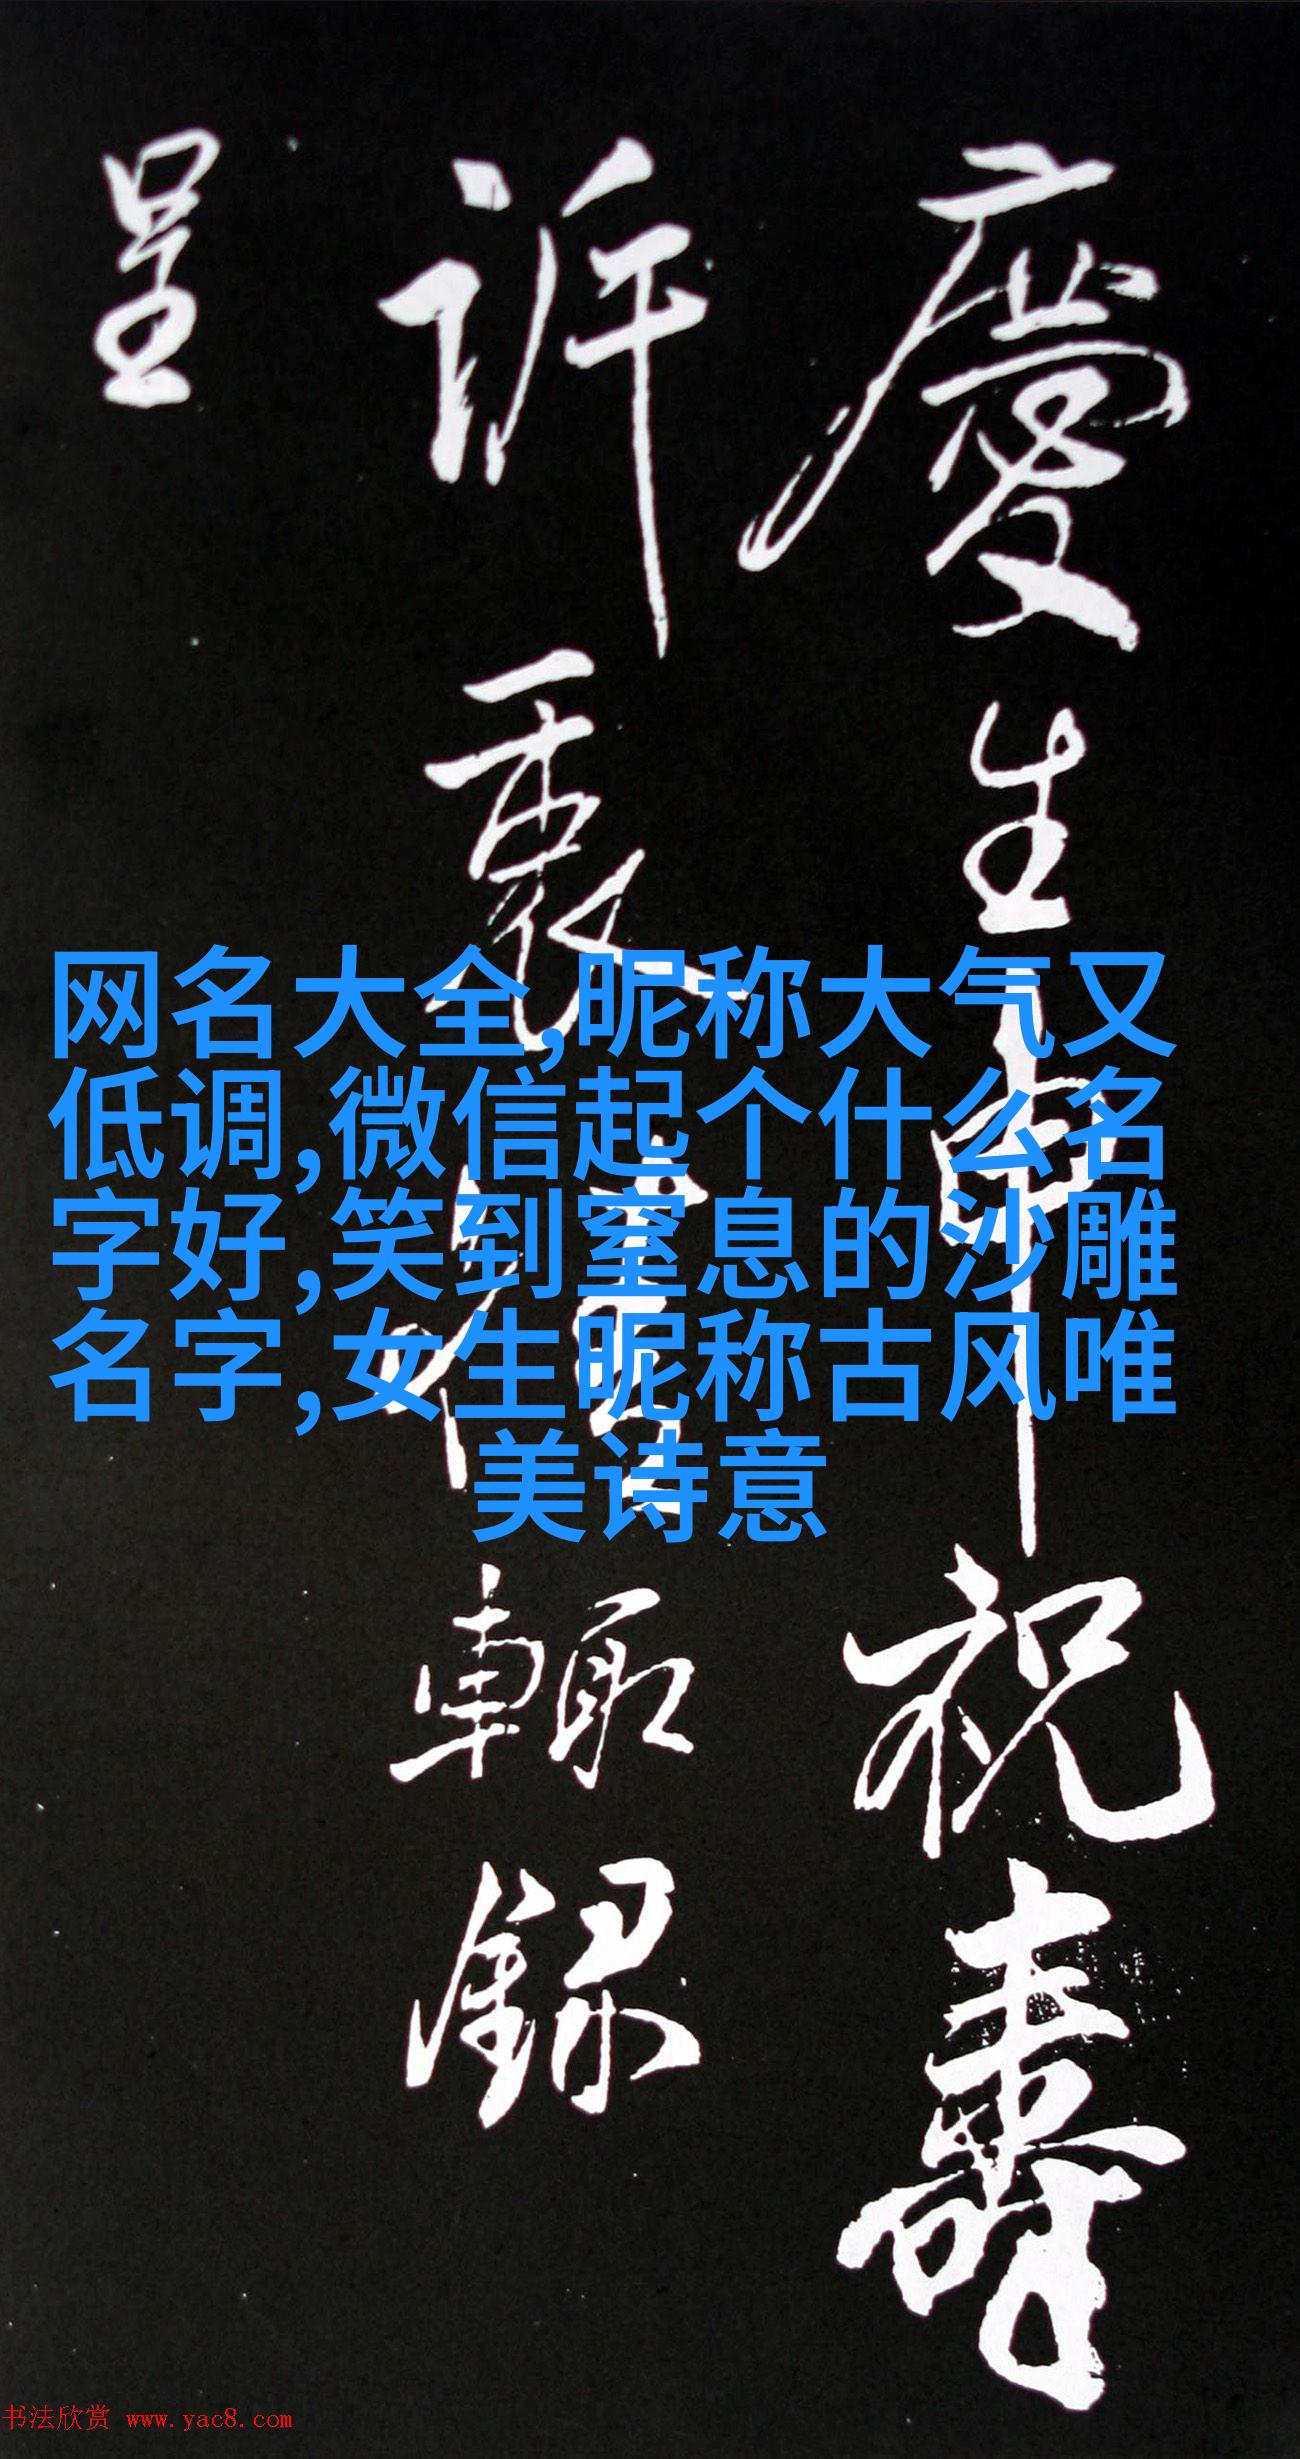 慶生申祝壽
訴衷情輙録
呈
网名大全,昵称大气又
低调,微信起个什么名
字好,笑到窒息的沙雕
名字,女生昵称古风唯
美诗意
书法欣赏 www.yac8.com